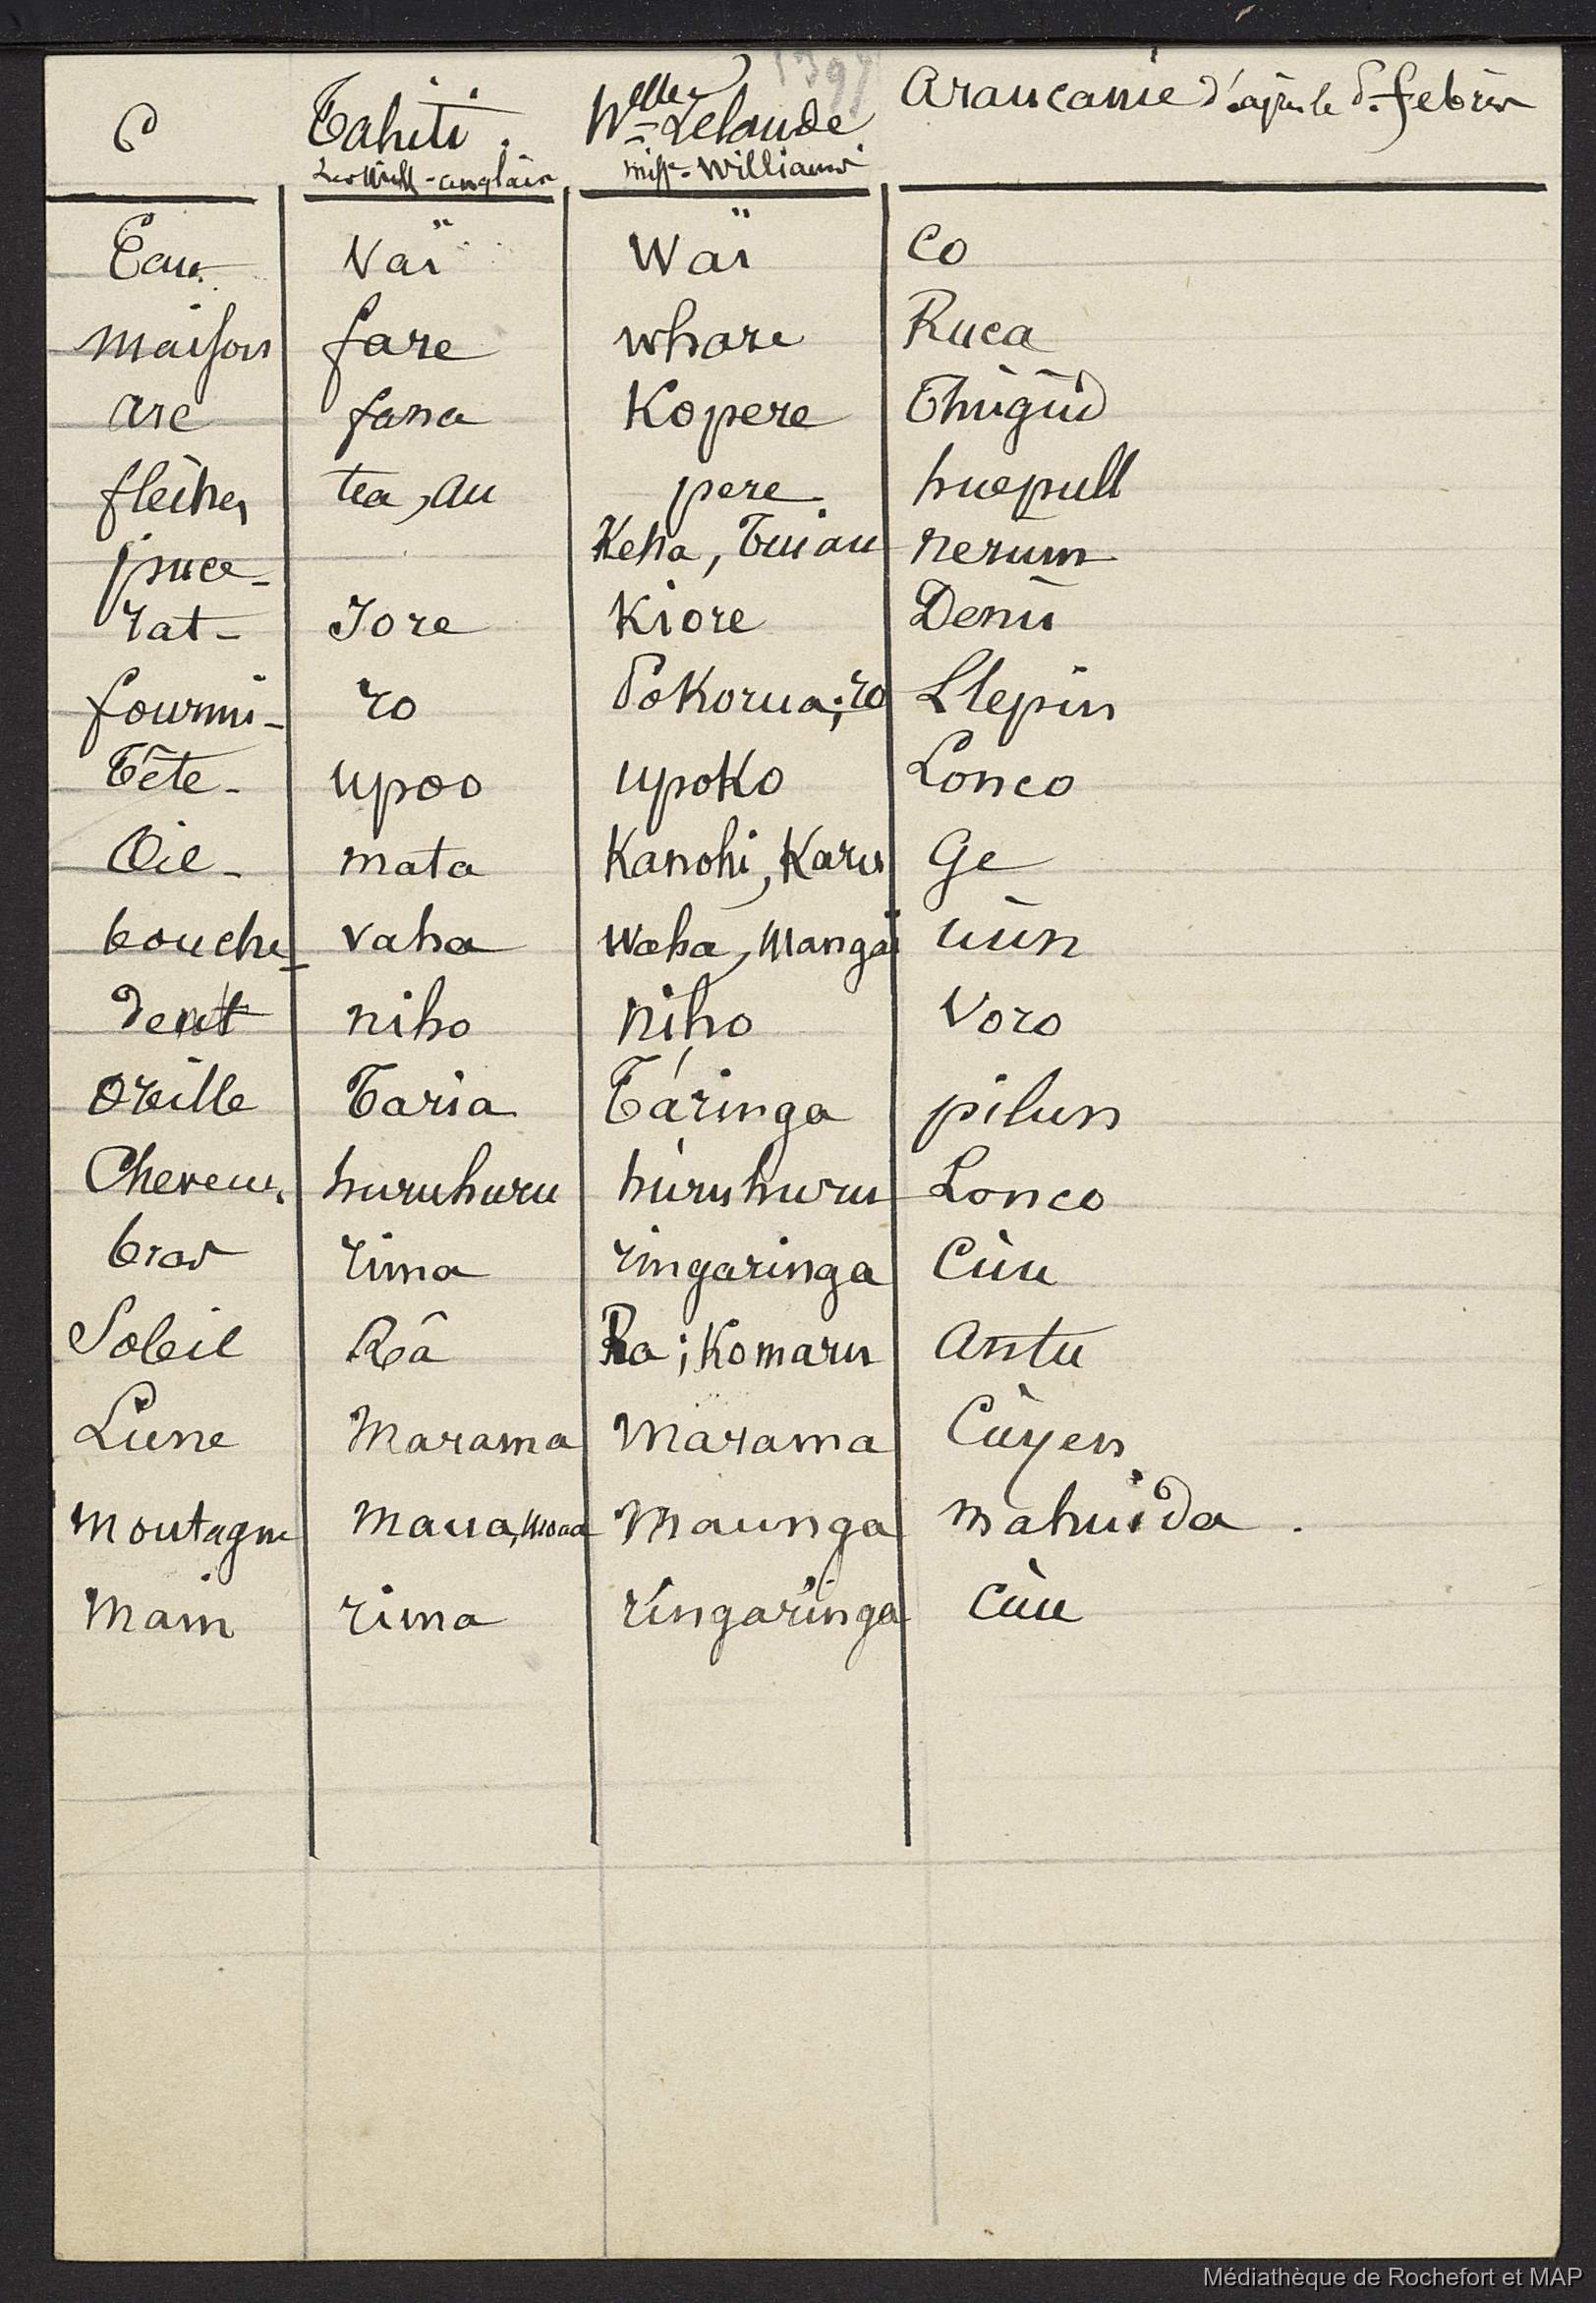 C Tahiti. Nelle Zelande Araucanie d'après le P. Febrès
miss-anglais miss-Williams
Eau Vaï Waï Co
maison fare whare Ruca
arc fana Kopere Thùgùd
flèches tea, au pere huepull
puce Keha, Tuiau nerùm
rat Iore Kiore Denù
fourmi ro Pokorua; ro Llepin
Tête upoo upoko Lonco
Oeil mata Kanohi, Karu Ge
bouche vaha Waha, Mangaï ùùn
dent niho niho Voro
oreille Taria Táringa pilun
Cheveux huruhuru húruhuru Lonco
bras rima ringaringa Cùu
Soleil Râ Ra; Komaru Antu
Lune Marama Marama Cùyen
Montagne Maua, Moua Maunga mahuida.
Main rima ríngarínga Cùu
Médiathèque de Rochefort et MAP